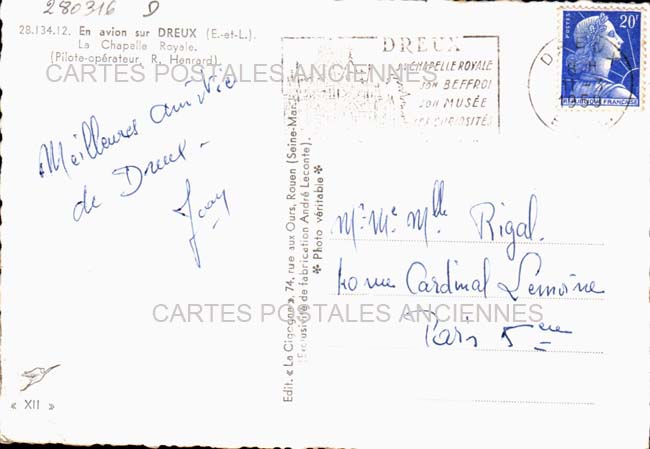 280316 D
28.134.12. En avion sur DREUX (E.-et-L.).
La Chapelle Royale.
(Pilote-opérateur, R. Henrard).
CARTES POSTALES ANCIENNES
Meilleures amitiés
de Dreux -
DREUX
SA CHAPELLE ROYALE
SON BEFFROI
SON MUSÉE
SES CURIOSITÉS
POSTES
20F
RÉPUBLIQUE FRANÇAISE
Edit. « La Cigogne », 74, rue aux Ours, Rouen (Seine-Mar.
(Exclusivité de fabrication André Leconte).
✻ Photo véritable ✻
Mr Me Mlle Rigal.
rue Cardinal Lemoine
Paris 5ème
CARTES POSTALES ANCIENNES
« XII »